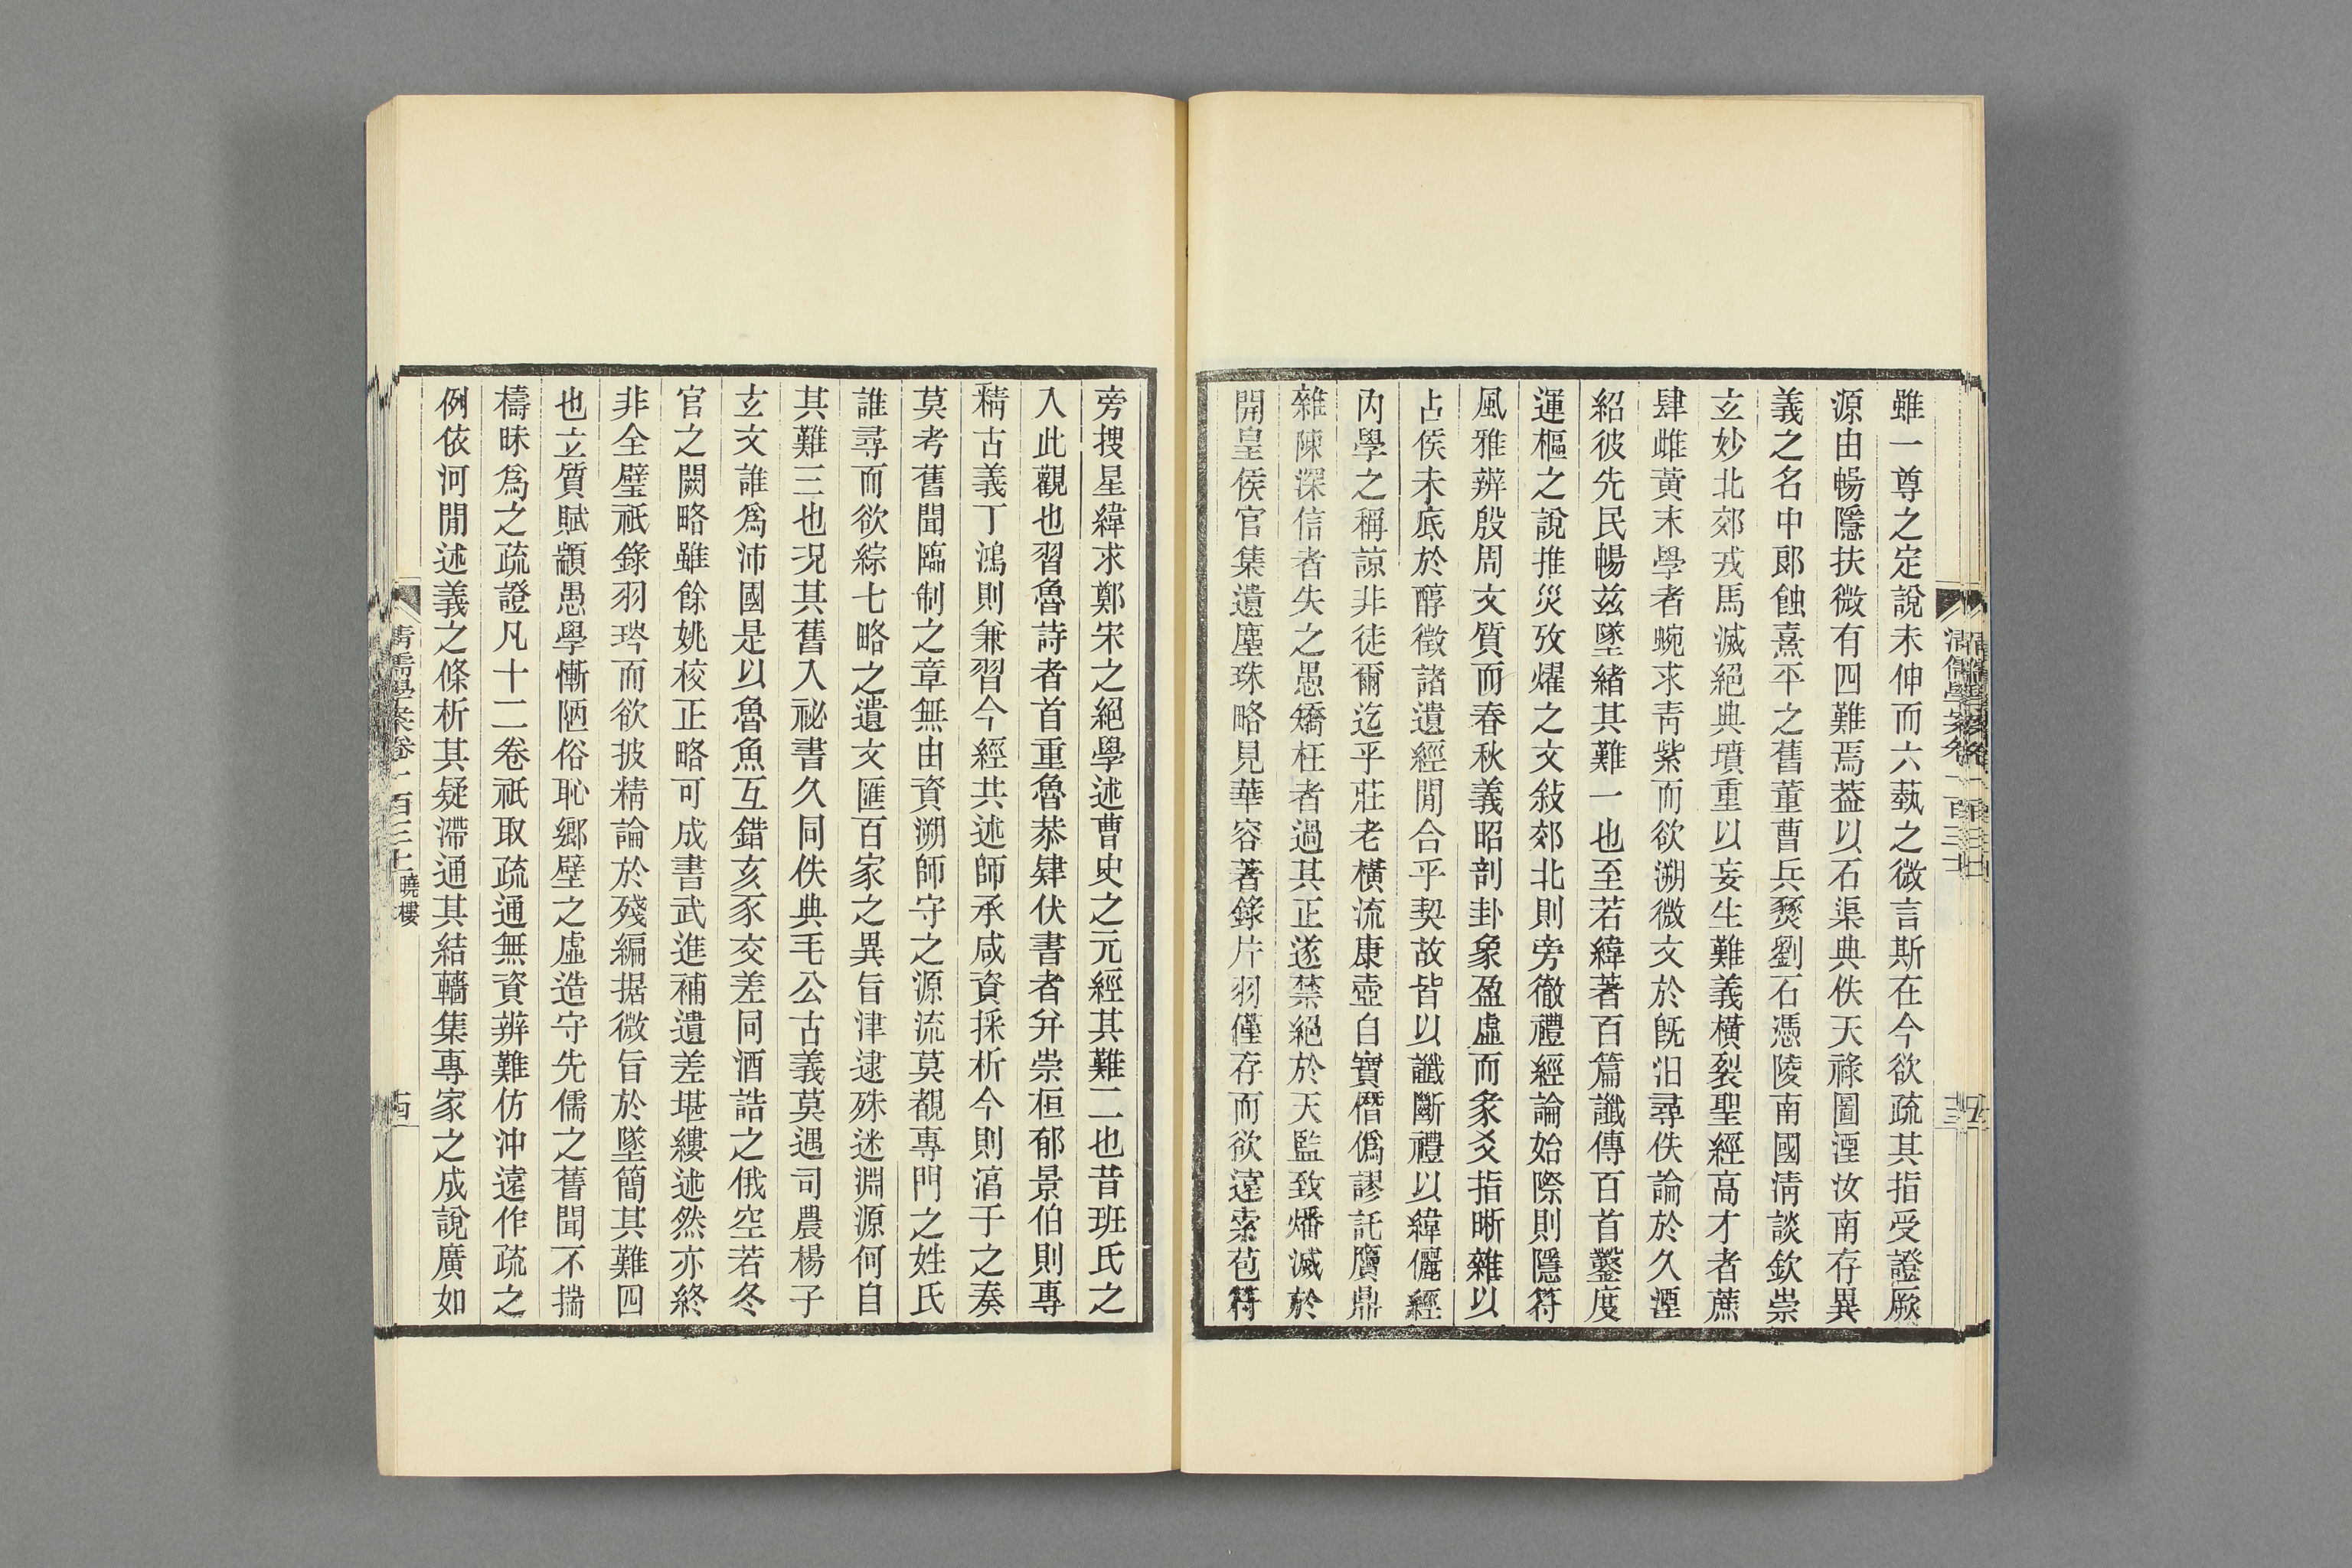 雖一尊之定說未伸而六蓺之微言斯在今欲疏其指受證厥
源由暢隱扶微有四難焉葢以石渠典佚天祿圖湮汝南存異
義之名中郎蝕熹平之舊董曹兵燹劉石憑陵南國淸談欽崇
玄妙北郊戎馬滅絕典墳重以妄生難義橫裂聖經高才者蔗
肆雌黃末學者蜿求靑紫而欲溯微文於旣汩尋佚論於久湮
紹彼先民暢茲墜緖其難一也至若緯著百篇讖傳百首鑿度
運樞之說推災攷燿之文敍郊北則旁徹禮經論始際則隱符
風雅辨殷周文質而春秋義昭剖卦象盈虛而彖爻指晰雜以
占侯未底於醇徵諸遺經閒合乎契故皆以讖斷禮以緯儷經
內學之稱諒非徒爾迄乎莊老橫流康壺自寶僭僞謬託贗鼎
雜陳深信者失之愚矯枉者過其正遂禁絕於天監致燔滅於
開皇侯官集遺塵珠略見華容著錄片羽僅存而欲遠索苞符
旁搜星緯求鄭宋之絕學述曹史之元經其難二也昔班氏之
入此觀也習魯詩者首重魯恭肄伏書者幷崇桓郁景伯則專
精古義丁鴻則兼習今經共述師承咸資採析今則湻于之奏
莫考舊聞臨制之章無由資溯師守之源流莫覩專門之姓氏
誰尋而欲綜七略之遺文匯百家之異旨津逮殊迷淵源何自
其難三也況其舊入祕書久同佚典毛公古義莫遇司農楊子
玄文誰爲沛國是以魯魚互錯亥豕交差同酒誥之俄空若冬
官之闕略雖餘姚校正略可成書武進補遺差堪縷述然亦終
非全璧祇錄羽琌而欲披精論於殘編据微旨於墜簡其難四
也立質賦顓愚學慚陋俗恥鄉壁之虛造守先儒之舊聞不揣
檮昧爲之疏證凡十二卷祇取疏通無資辨難仿沖遠作疏之
例依河閒述義之條析其疑滯通其結轖集專家之成說廣如
淸儒學案卷一百三十 曉樓